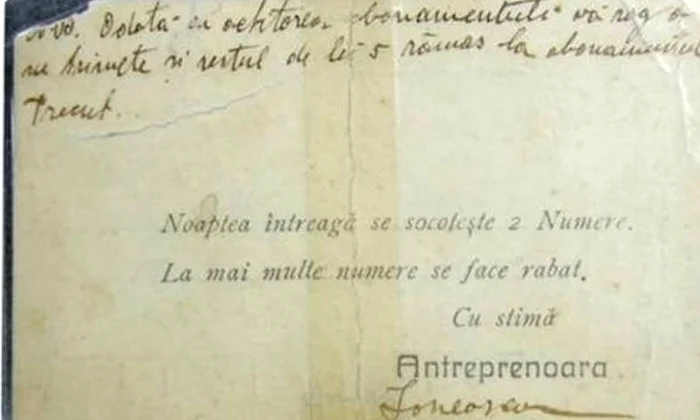 Odată cu achitarea abonamentului vă rog a
ne trimete și restul de lei 5 rămas la abonamentul
Trecut.
Noaptea întreagă se socotește 2 Numere.
La mai multe numere se face rabat.
Cu stimă
Antreprenoara